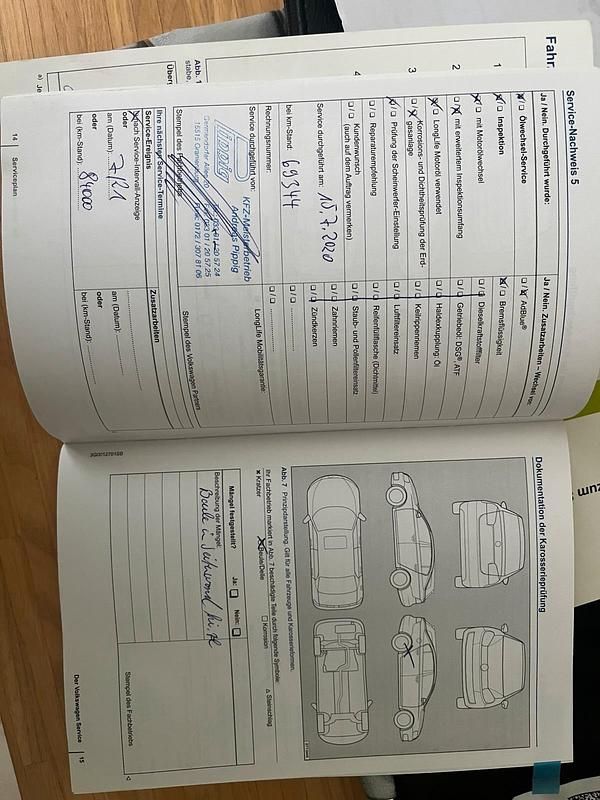 Service-Nachweis 5
Ja / Nein. Durchgeführt wurde:
Ölwechsel-Service
Inspektion
mit Motorölwechsel
mit erweitertem Inspektionsumfang
LongLife Motoröl verwendet
Korrosions- und Dichtheitsprüfung der Erd-
gasanlage
Prüfung der Scheinwerfer-Einstellung
Reparaturempfehlung
Kundenwunsch
(auch auf dem Auftrag vermerken)
Service durchgeführt am: 15.7.2020
bei km-Stand: 69344
Rechnungsnummer:
Service durchgeführt von:
Pippig
KFZ-Meisterbetrieb
Andreas Pippig
Stempel des Fachbetriebs
Ihre nächsten Service-Termine
Service-Ereignis
nach Service-Intervall-Anzeige
oder
am (Datum): 7/21
oder
bei (km-Stand): 84000
14 Serviceplan
Ja / Nein. Zusatzarbeiten – Wechsel von:
AdBlue®
Bremsflüssigkeit
Dieselkraftstofffilter
Getriebeöl: DSG® ATF
Haldexkupplung: Öl
Keilrippenriemen
Luftfiltereinsatz
Reifenfüllflasche (Dichtmittel)
Staub- und Pollenfiltereinsatz
Zahnriemen
Zündkerzen
LongLife Mobilitätsgarantie:
Stempel des Volkswagen Partners
Zusatzarbeiten
am (Datum):
oder
bei (km-Stand):
Dokumentation der Karosserieprüfung
Abb. 7 Prinzipdarstellung. Gilt für alle Fahrzeuge und Karosserieformen.
Ihr Fachbetrieb markiert in Abb. 7 beschädigte Teile durch folgende Symbole:
Kratzer
Beule/Delle
Korrosion
Steinschlag
Mängel festgestellt? Ja: Nein:
Beschreibung der Mängel:
Beule in Seitenwand hi. re
Stempel des Fachbetriebs
Der Volkswagen Service 15